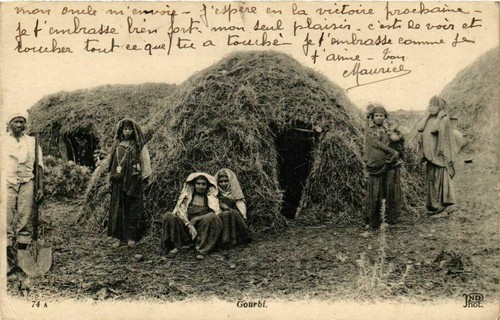 mon oncle m'envoie - J'espère en la victoire prochaine -
je t'embrasse bien fort. mon seul plaisir. c'est de voir et
toucher tout ce que tu a touché - Je t'embrasse comme je
t'aime - Ton
Maurice
74 A
Gourbi.
ND
Phot.